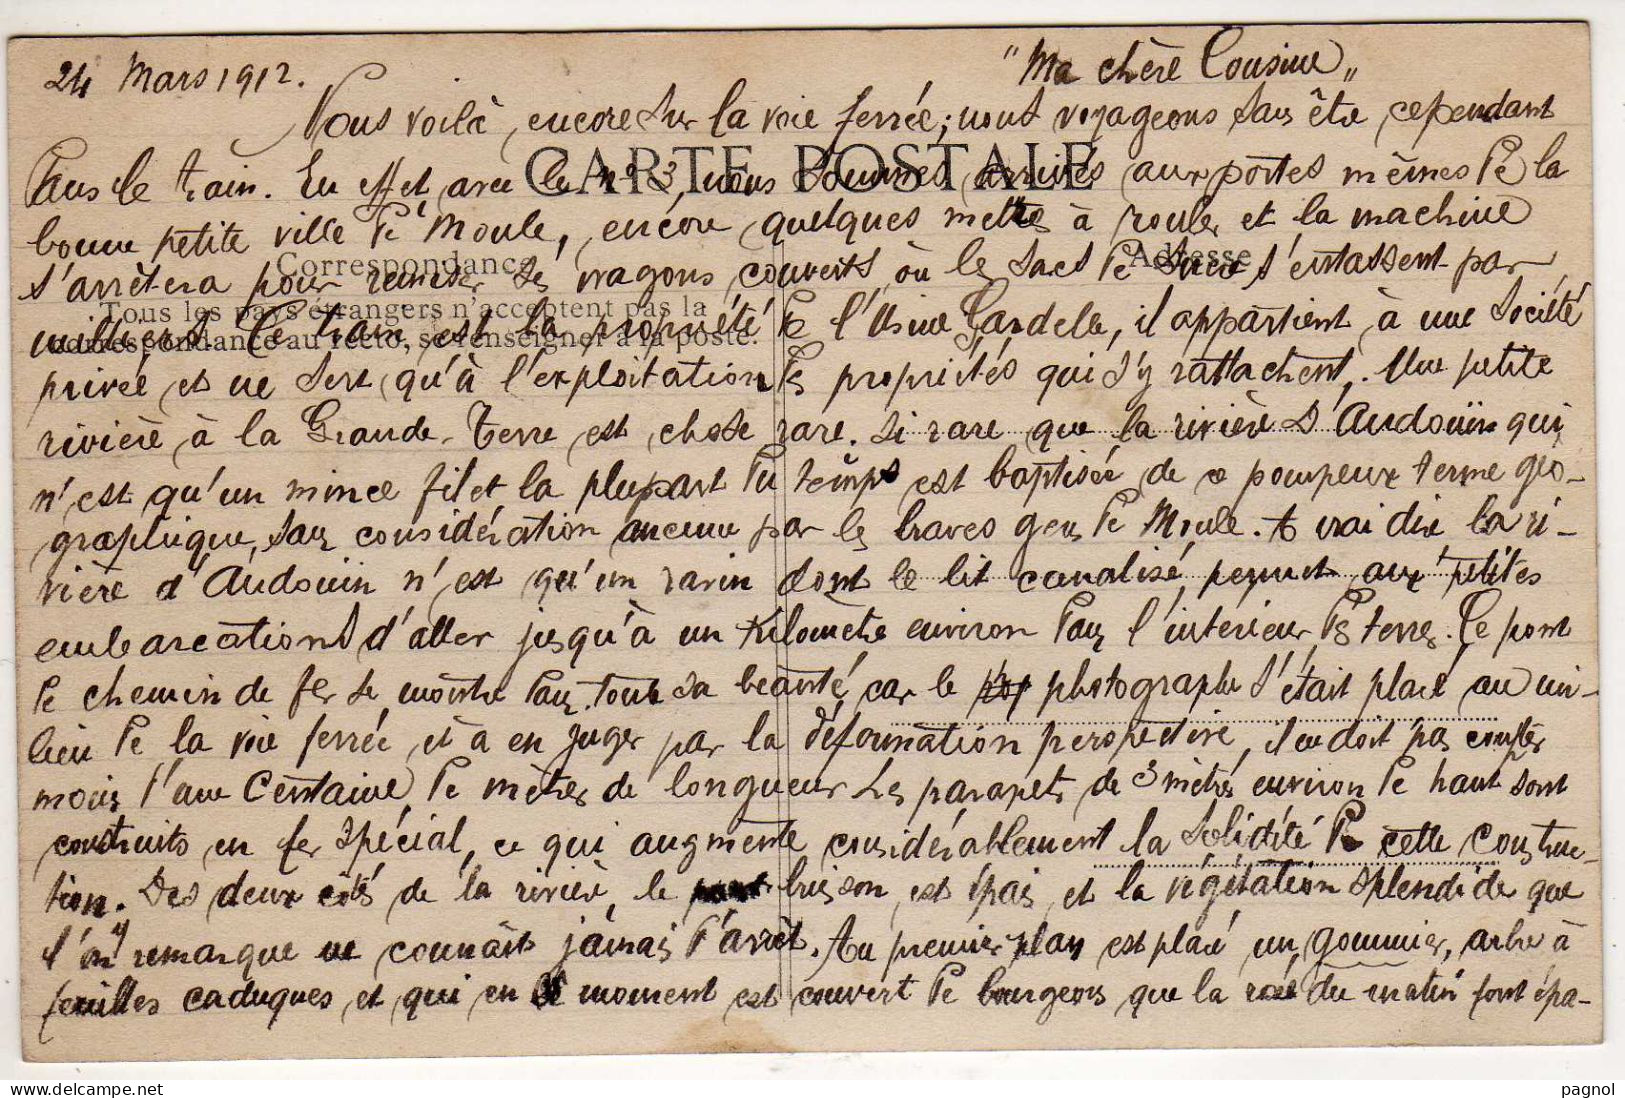 24 Mars 1912. "Ma chère Cousine„
Nous voilà encore sur la voie ferrée; nous voyageons sans être cependant
CARTE POSTALE
dans le train. En effet avec le nº 3, nous sommes arrivés aux portes mêmes de la
bonne petite ville de Moule, encore quelques mètres à rouler et la machine
Correspondance
Adresse
s'arrêtera pour remiser ses wagons couverts où les sacs de sucre s'entassent par
Tous les pays étrangers n'acceptent pas la
milliers. Ce train est la propriété de l'Usine Gardelle, il appartient à une Société
correspondance au recto, se renseigner à la poste.
privée et ne sert qu'à l'exploitation des propriétés qui s'y rattachent. Une petite
rivière à la Grande-Terre est chose rare. Si rare que la rivière d'Audoüin qui
n'est qu'un mince filet la plupart du temps est baptisée de ce pompeux terme géo-
graphique, sans considération aucune par les braves gens de Moule. A vrai dire la ri-
vière d'Audouin n'est qu'un ravin dont le lit canalisé permet aux petites
embarcations d'aller jusqu'à un kilomètre environ dans l'intérieur des terres. Ce pont
de chemin de fer se montre dans toute sa beauté car le photographe s'était placé au mi-
lieu de la voie ferrée et à en juger par la déformation perspective, il ne doit pas compter
moins d'une Centaine de mètres de longueur. Les parapets de 3 mètres environ de haut sont
construits en fer spécial, ce qui augmente considérablement la solidité de cette construc-
tion. Des deux côtés de la rivière, le buisson est épais et la végétation splendide que
l'on y remarque ne connaît jamais d'arrêt. Au premier plan est placé un gommier, arbre à
feuilles caduques et qui en ce moment est couvert de bourgeons que la rosée du matin font épa-
pagnol
delcampe.net